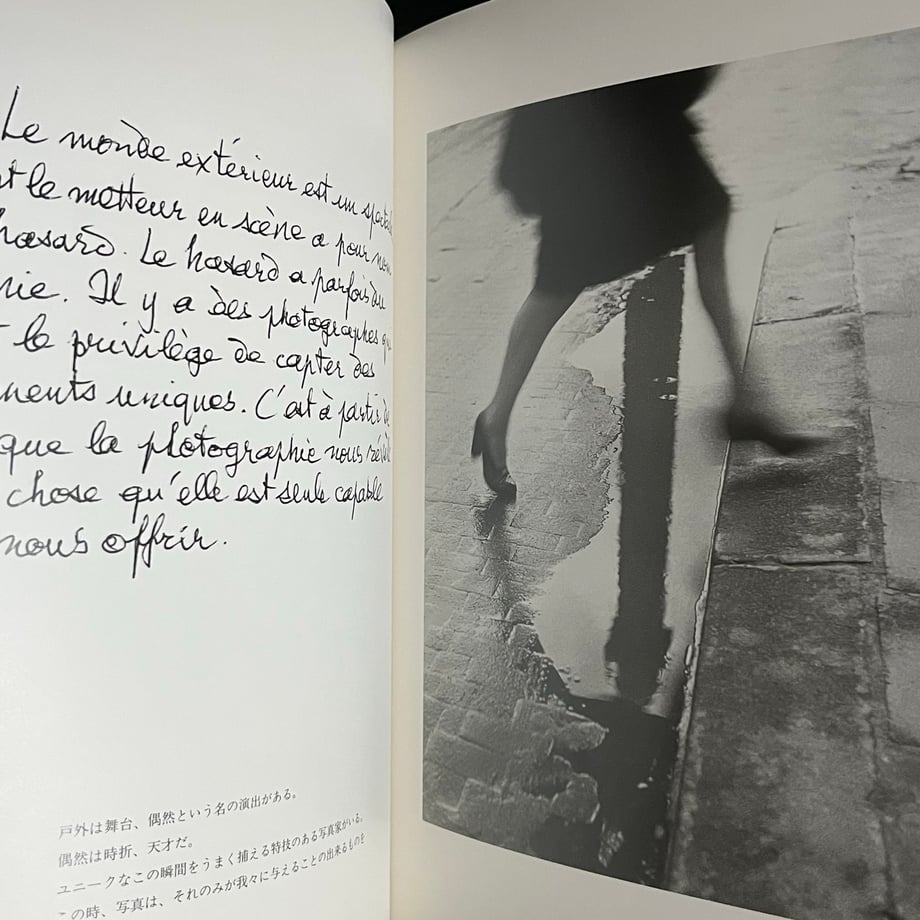 Le monde extérieur est un
le metteur en scène a pour
hasard. Le hasard a parfois du
Il y a des photographes
le privilège de capter des
uniques. C'est à partir
que la photographie nous
chose qu'elle est seule capable
nous offrir.
戸外は舞台、偶然という名の演出がある。
偶然は時折、天才だ。
ユニークなこの瞬間をうまく捕える特技のある写真家がいる。
この時、写真は、それのみが我々に与えることの出来るものを